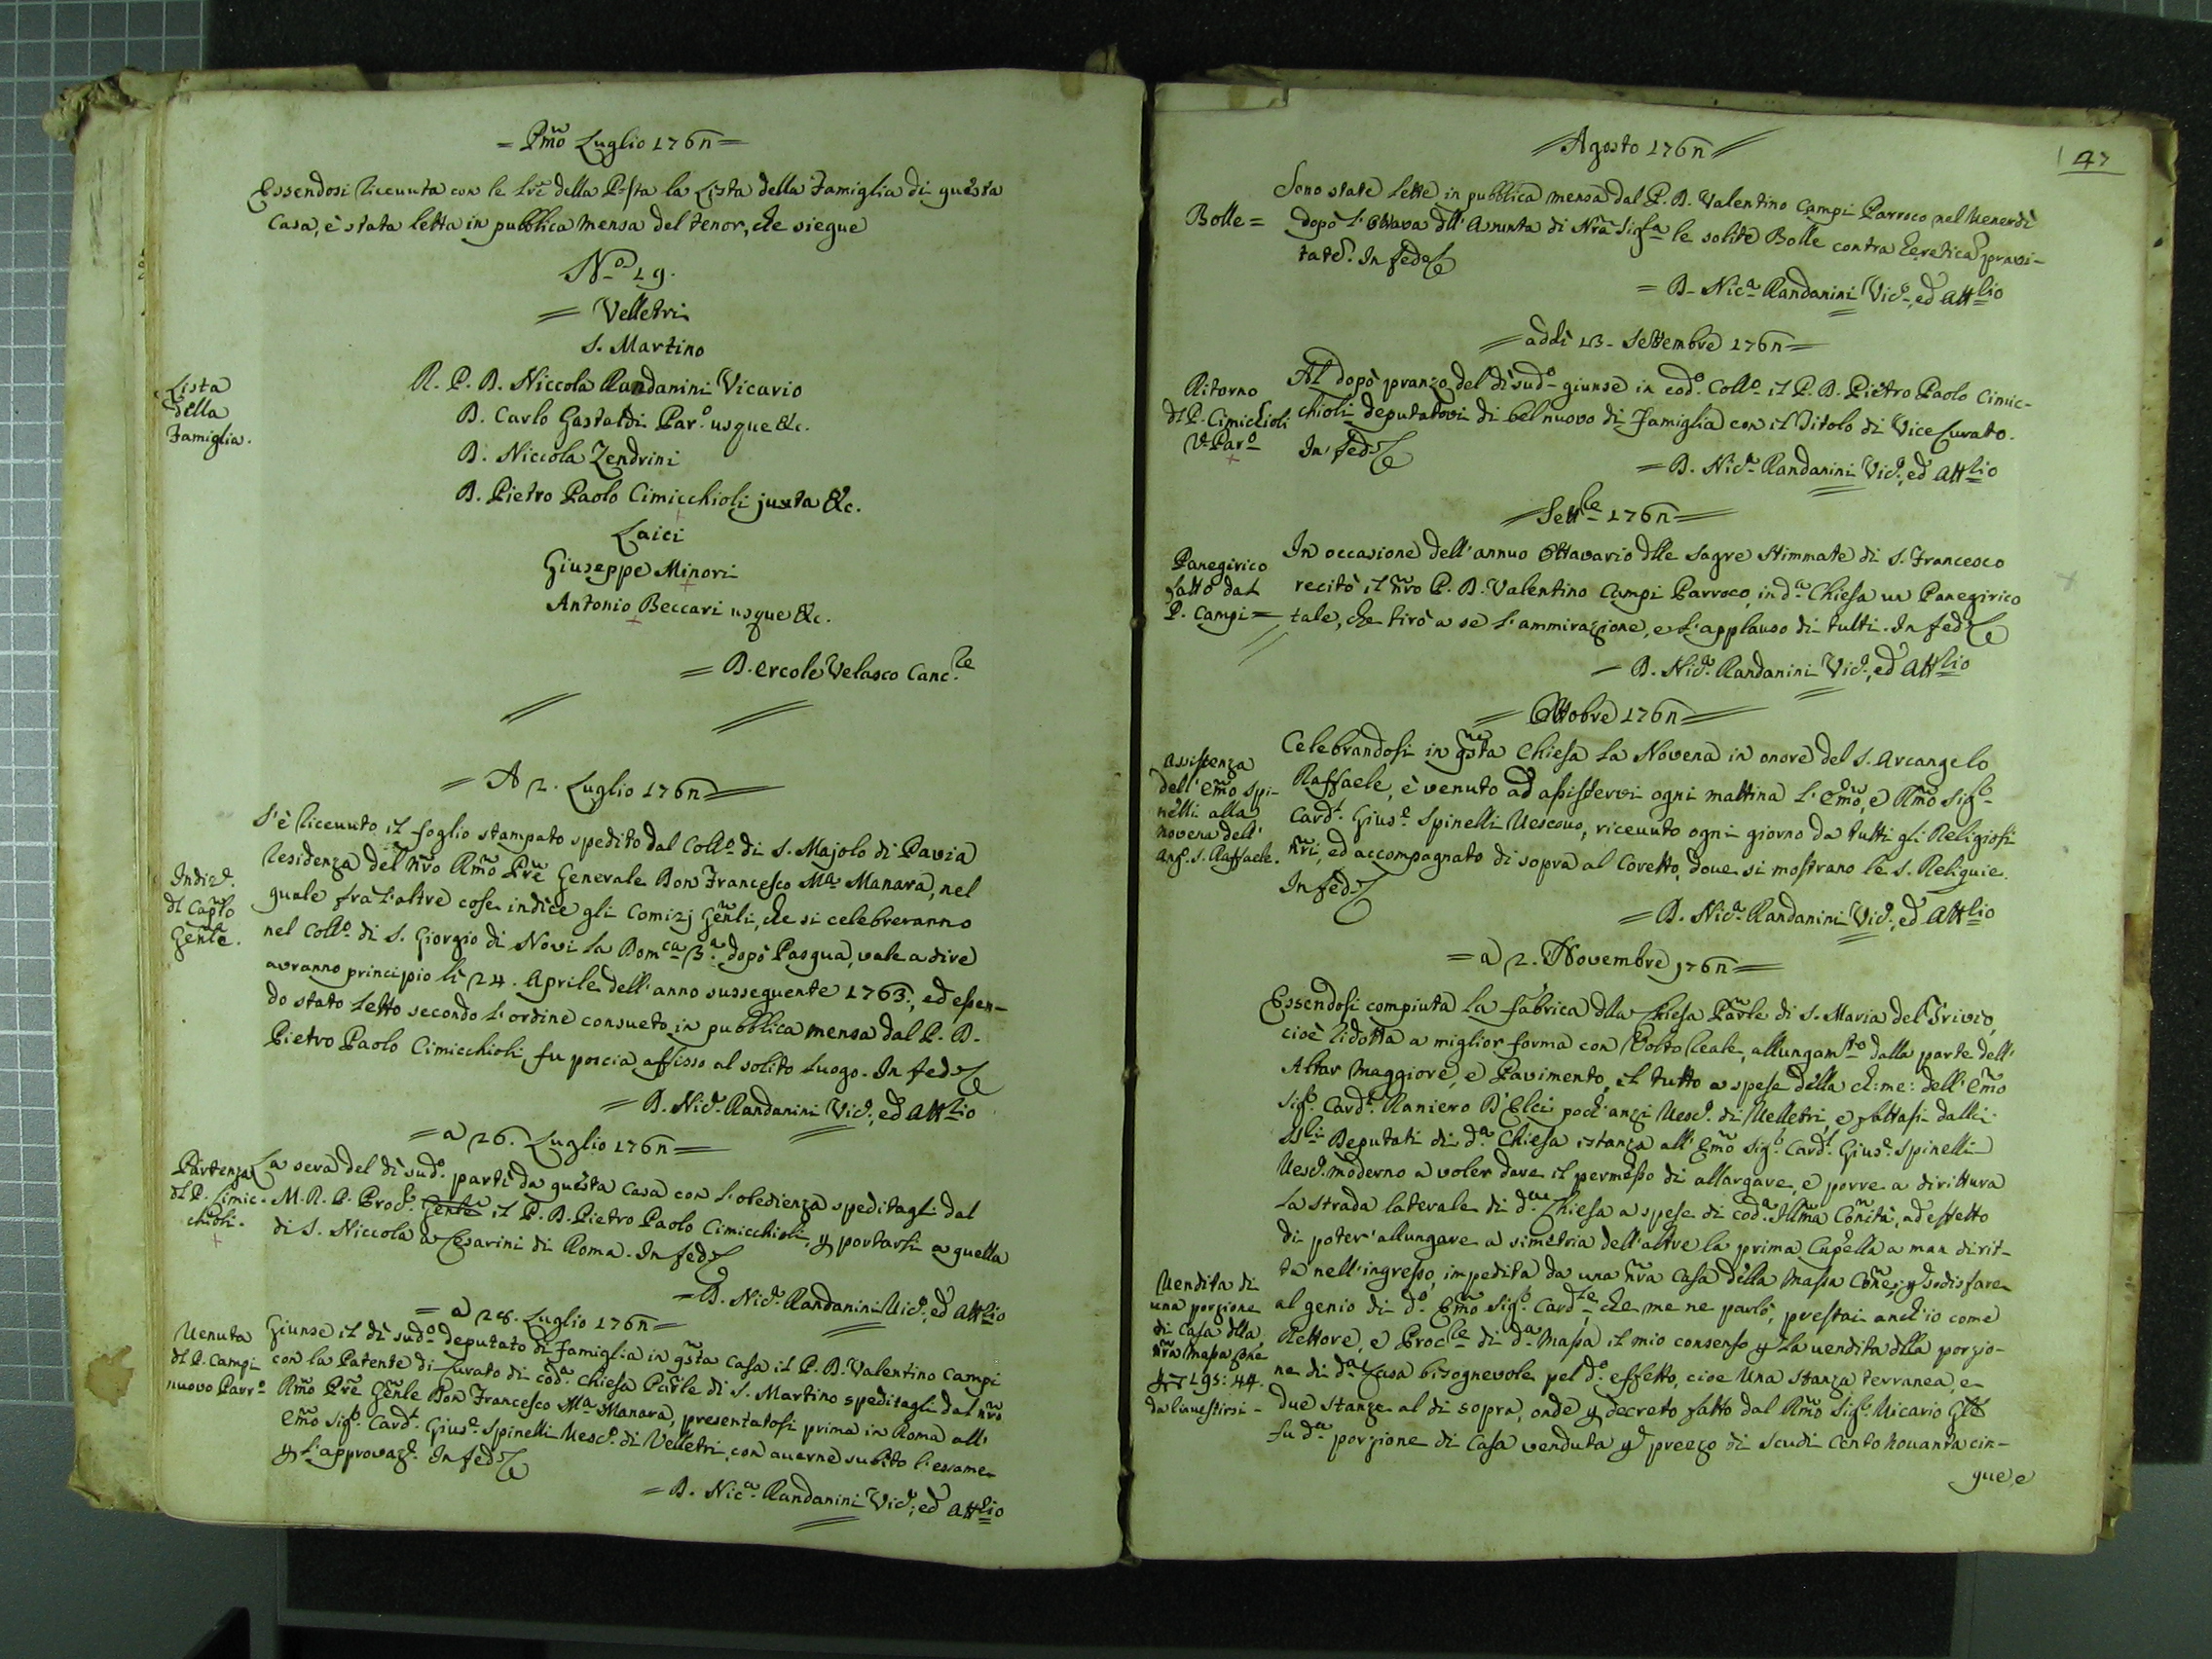 = Pmo Luglio 1762 =
Essendosi ricevuta con le lre della Posta la Lista della Famiglia di questa
Casa, è stata letta in pubblica mensa del tenor, che siegue
No 19.
= Velletri
S. Martino
Lista
della
Famiglia.
R. P. D. Niccola Randanini Vicario
D. Carlo Gastaldi Par.o usque &c.
D. Niccola Zendrini
D. Pietro Paolo Cimicchioli juxta &c.
Laici
Giuseppe Minori
Antonio Beccari usque &c.
= D. Ercole Velasco Canc.re
= A 2. Luglio 1762 =
Indiz.e
di Caplo
Genle.
S'è ricevuto il foglio stampato spedito dal Collo di S. Majolo di Pavia
Residenza del nro Rmo Pre Generale Don Francesco Ma Manara, nel
quale frà l'altre cose indice gli Comizj Genli, che si celebreranno
nel Collo di S. Giorgio di Novi la Domca 3.a dopò Pasqua, vale a dire
avranno principio li 24. Aprile dell'anno susseguente 1763., ed essen-
do stato letto secondo l'ordine consueto in pubblica mensa dal P. D.
Pietro Paolo Cimicchioli, fu poscia affisso al solito luogo. In fede
= D. Nica Randanini Vico, ed Attrio
= a 26. Luglio 1762 =
Partenza
dl P. Cimic-
chioli.
La sera del dì sudo partì da questa Casa con l'obedienza speditagli dal
M. R. P. Proc.e Genle il P. D. Pietro Paolo Cimicchioli, p portarsi a quella
di S. Niccola a Cesarini di Roma. In fede
= D. Nica Randanini Vico, ed Attrio
= a 28. Luglio 1762 =
Venuta
dl P. Campi
nuovo Parro
Giunse il dì sudo deputato di Famiglia in qsta Casa il P. D. Valentino Campi
con la Patente di Curato di coda Chiesa Parle di S. Martino speditagli dal nro
Rmo Pre Genle Don Francesco Ma Manara, presentatosi prima in Roma all'
Emo Sigr Cardl Giuse Spinelli Vesco di Velletri, con averne subito l'essame
p l'approvaze. In fede
= D. Nica Randanini Vico, ed Attrio
47
= Agosto 1762 =
Bolle =
Sono state lette in pubblica mensa dal P. D. Valentino Campi Parroco nel Venerdì
dopò l'Ottava dll'Assunta di Nra Sigra le solite Bolle contra hereticã pravi-
tatẽ. In fede
= D. Nica Randanini Vico, ed Attrio
= addì 13. Settembre 1762 =
Ritorno
dl P. Cimichioli
Ve Paro
Al dopò pranzo del dì sudo giunse in codo Collo il P. D. Pietro Paolo Cimic-
chioli deputatovi di bel nuovo di Famiglia con il Titolo di ViceCurato.
In fede
= D. Nica Randanini Vico, ed Attrio
= Settre 1762 =
Panegirico
fatto dal
P. Campi =
In occasione dell'annuo Ottavario dlle Sagre Stimmate di S. Francesco
recitò il nro P. D. Valentino Campi Parroco, in da Chiesa un Panegirico
tale, che tirò a se l'ammirazione, e l'applauso di tutti. In fede
= D. Nica Randanini Vico, ed Attrio
= Ottobre 1762 =
Assistenza
dell'Emo Spi-
nelli alla
novena dell'
Ang. S. Raffaele.
Celebrandosi in qsta Chiesa la Novena in onore del S. Arcangelo
Raffaele, è venuto ad assistervi ogni mattina l'Emo, e Rmo Sigr
Cardl Giuse Spinelli Vescovo, ricevuto ogni giorno da tutti gli Religiosi
nri, ed accompagnato di sopra al Coretto, dove si mostrano le S. Reliquie.
In fede
= D. Nica Randanini Vico, ed Attrio
= a 2. Novembre 1762 =
Essendosi compiuta la fabrica dlla Chiesa Parle di S. Maria del Trivio,
cioè ridotta a miglior forma con Volto reale, allungamto dalla parte dell'
Altar Maggiore, e Pavimento, il tutto a spese della ch: me: dell'Emo
Sigr Cardl Raniero D'Elci poch'anzi Vesco di Velletri, e fattasi dalli
Deputati di da Chiesa istanza all'Emo Sigr Cardl Giuse Spinelli
Vesco moderno a voler dare il permesso di allargare, e porre a dirittura
la strada laterale di da Chiesa a spese di coda Illma Comità, ad effetto
di poter'allungare a simetria dell'altre la prima Capella a man dirit-
ta nell'ingresso, impedita da una nra Casa della Massa Cone; p sodisfare
Vendita di
una porzione
di Casa dlla
nra Massa Cone
p 195: 44.
da rinvestirsi -
al genio di do Emo Sigr Cardle, che me ne parlò, prestai anch'io come
Rettore, e Procre di da Massa il mio consenso p la vendita dlla porzio-
ne di da Casa bisognevole pel do effetto, cioe Una Stanza terranea, e
due Stanze al di sopra, onde p decreto fatto dal Rmo Sigr Vicario Gle
fu da porzione di Casa venduta p prezzo di scudi cento novanta cin-
que, e